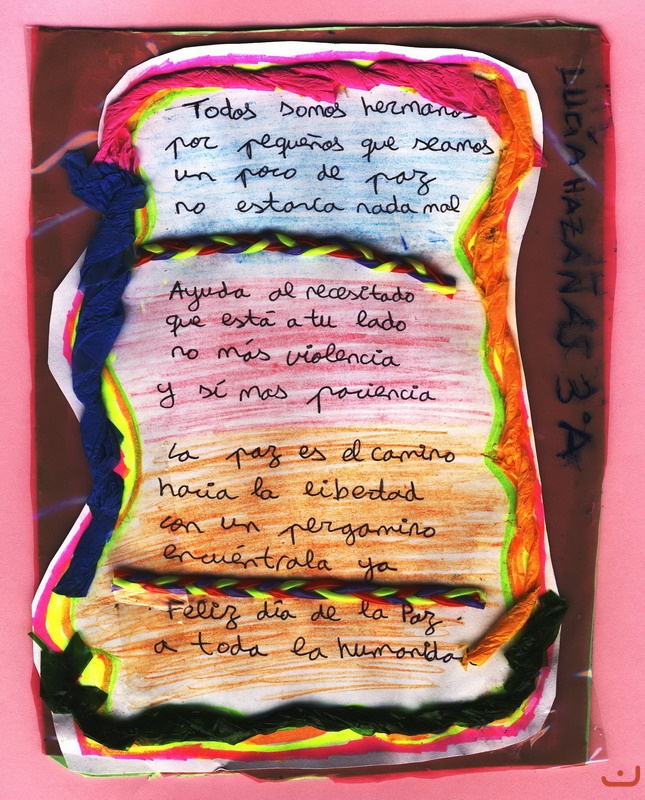 Todos somos hermanos
por pequeños que seamos
un poco de paz
no estaría nada mal
Ayuda al necesitado
que está a tu lado
no más violencia
y sí mas paciencia
La paz es el camino
hacia la libertad
con un pergamino
encuéntrala ya
Feliz día de la Paz
a toda la humanidad
LUCÍA HAZAÑAS 3ºA